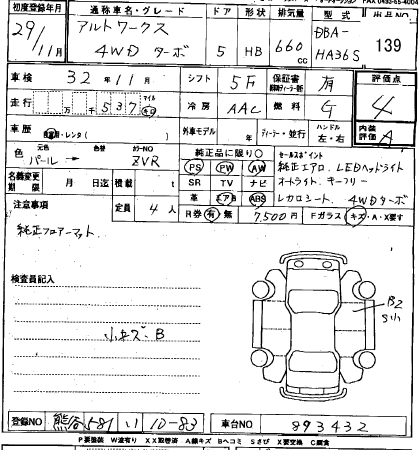 初度登録年月 通称車名・グレード ドア 形状 排気量 型式 出品NO
29/11月 アルトワークス 4WDターボ 5 HB 660cc DBA-HA36S 139
車検 32年11月 シフト 5F 保証書 有 評価点
走行 万 千 537 マイル km 冷房 AAC 燃料 G 4
車歴 自家用・レンタ( ) 外車モデル 年 ディーラー・並行 ハンドル 左・右 内装評価 A
色 元色 パール→ 色替 カラーNO ZVR 純正品に限り○ セールスポイント
PS PW AW 純正エアロ. LEDヘッドライト
名義変更期限 月 日迄 積載 t SR TV ナビ オートライト. キーフリー
革 エアB ABS レカロシート. 4WDターボ
注意事項 定員 4人 R券 有 無 7,500円 Fガラス キズ・A・X要す
純正フロアーマット.
検査員記入
小キズ・B
B2
S小
登録NO 熊谷 581 い 10-83 車台NO 893432
P要塗装 W波有り XX取替済 A線キズ Bヘコミ Sさび X要交換 C腐食